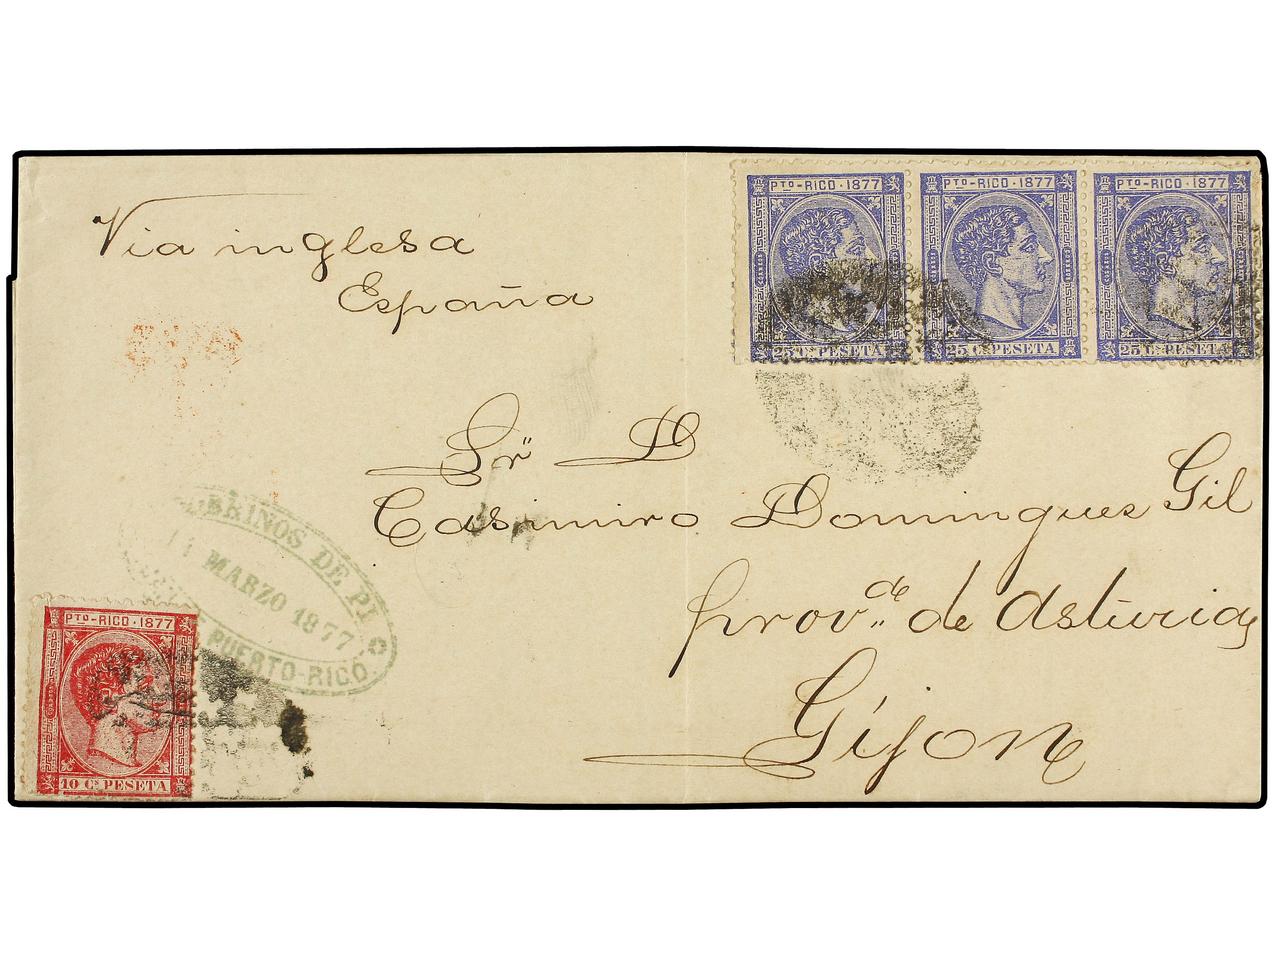 Via inglesa
España
PTO-RICO · 1877
PTO-RICO · 1877
PTO-RICO · 1877
25 CS PESETA
25 CS PESETA
25 CS PESETA
Sr D
Casimiro Domingues Gil
provª de Asturias
Gijon
BRINOS DE
MARZO 1877
PUERTO-RICO
PTO-RICO · 1877
10 CS PESETA